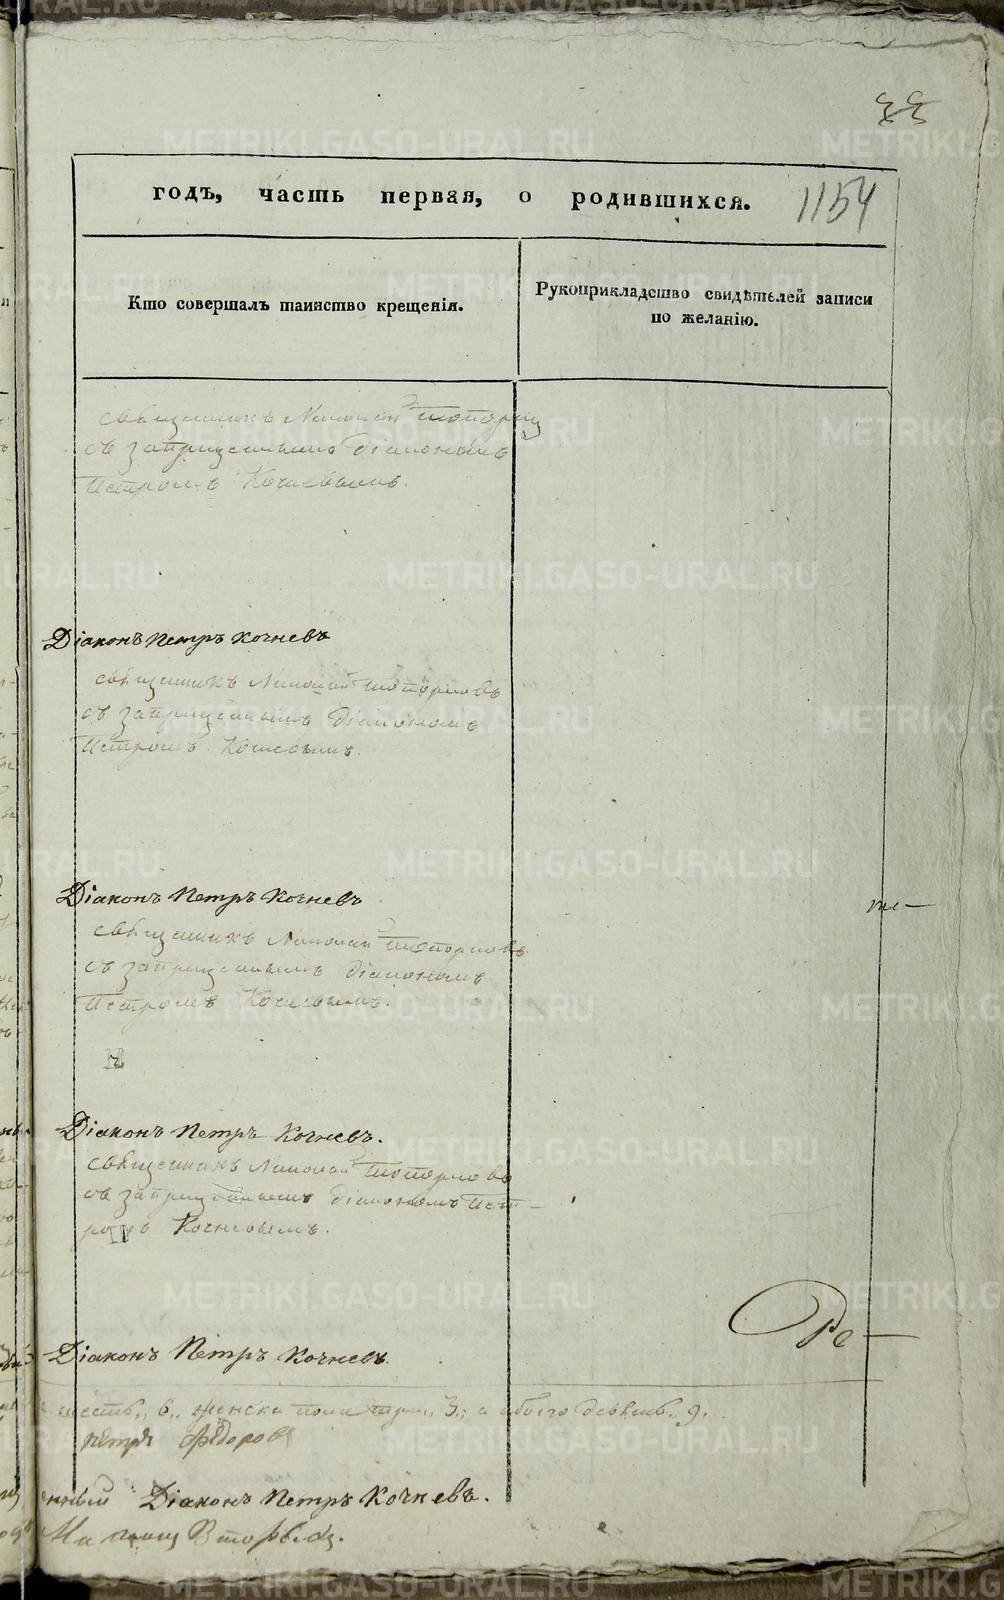 33
годъ, часть первая, о родившихся. 1154
Кто совершалъ таинство крещенія.
Рукоприкладство свидѣтелей записи
по желанію.
священникъ Николай Топорк
съ запрещеннымъ діакономъ
Петромъ Кочневымъ.
Діаконъ Петръ Кочневъ
священникъ Николай Топорковъ
съ запрещеннымъ діакономъ
Петромъ Кочневымъ.
Діаконъ Петръ Кочневъ
те-
священникъ Николай Топорковъ
съ запрещеннымъ діакономъ
Петромъ Кочневымъ.
Діаконъ Петръ Кочневъ.
священникъ Николай Топорковъ
съ запрещеннымъ діакономъ Пет-
ромъ Кочневымъ.
Ре-
Діаконъ Петръ Кочневъ
шесть, 6, женска пола три, 3, а обоего девять, 9.
Петръ Федоровъ
енный Діаконъ Петръ Кочневъ.
METRIKI.GASO-URAL.RU